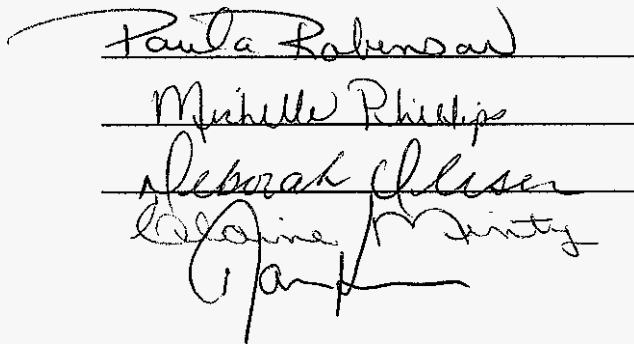 Paula Robinson
Michelle Phillips
Deborah
Elaine Minty